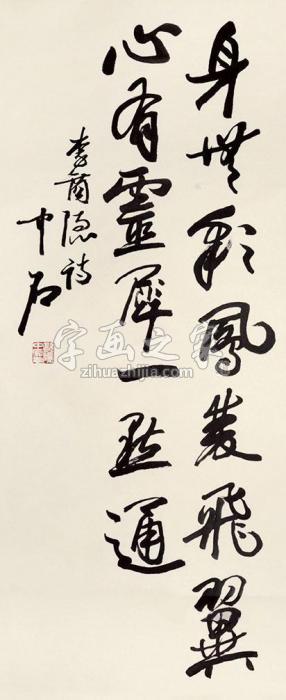 身無彩鳳雙飛翼
心有靈犀一點通
李商隱詩
中石
字画之家
zihuazhijia.com